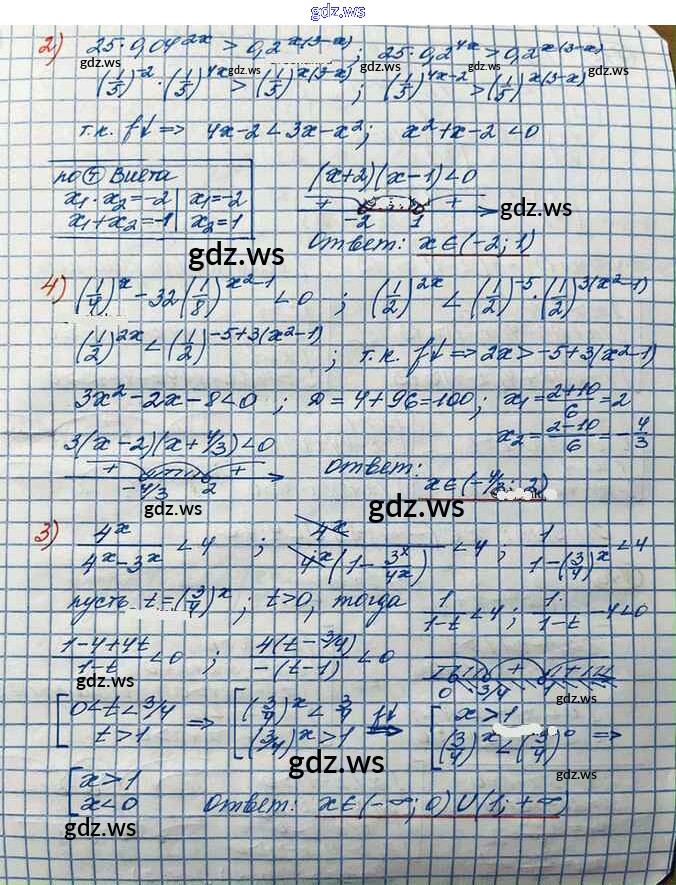 gdz.ws
2) 25·0,04^{2x} > 0,2^{x(3-x)} ; 25·0,2^{4x} > 0,2^{x(3-x)}
gdz.ws gdz.ws gdz.ws
(1/5)^{-2} · (1/5)^{4x} > (1/5)^{x(3-x)} ; (1/5)^{4x-2} > (1/5)^{x(3-x)}
т.к. f↓ => 4x-2 < 3x-x² ; x²+x-2 < 0
по Ⓣ Виета
x₁·x₂=-2 | x₁=-2
x₁+x₂=-1 | x₂=1
(x+2)(x-1)<0
+ - +
-2 1
gdz.ws gdz.ws
Ответ: x∈(-2; 1)
4) (1/4)^x - 32(1/8)^{x²-1} < 0 ; (1/2)^{2x} < (1/2)^{-5} · (1/2)^{3(x²-1)}
gdz.ws gdz.ws
(1/2)^{2x} < (1/2)^{-5+3(x²-1)} ; т.к. f↓ => 2x > -5+3(x²-1)
3x²-2x-8<0 ; D=4+96=100 ; x₁=(2+10)/6=2
x₂=(2-10)/6=-4/3
gdz.ws
3(x-2)(x+4/3)<0
+ +
-4/3 2
Ответ: x∈(-4/3; 2)
gdz.ws gdz.ws
3) 4^x/(4^x-3^x) < 4 ; 4^x/(4^x(1-3^x/4^x)) < 4 ; 1/(1-(3/4)^x) < 4
gdz.ws
пусть t=(3/4)^x ; t>0, тогда 1/(1-t) < 4 ; 1/(1-t) - 4 < 0
gdz.ws
(1-4+4t)/(1-t) < 0 ; 4(t-3/4)/(-(t-1)) < 0
0 3/4 1
gdz.ws gdz.ws
[0<t<3/4 ; t>1 => [(3/4)^x < 3/4 ; (3/4)^x > 1 f↓ => [x>1 ; (3/4)^x < (3/4)^0 =>
gdz.ws gdz.ws
[x>1 ; x<0 Ответ: x∈(-∞; 0)∪(1; +∞)
gdz.ws gdz.ws